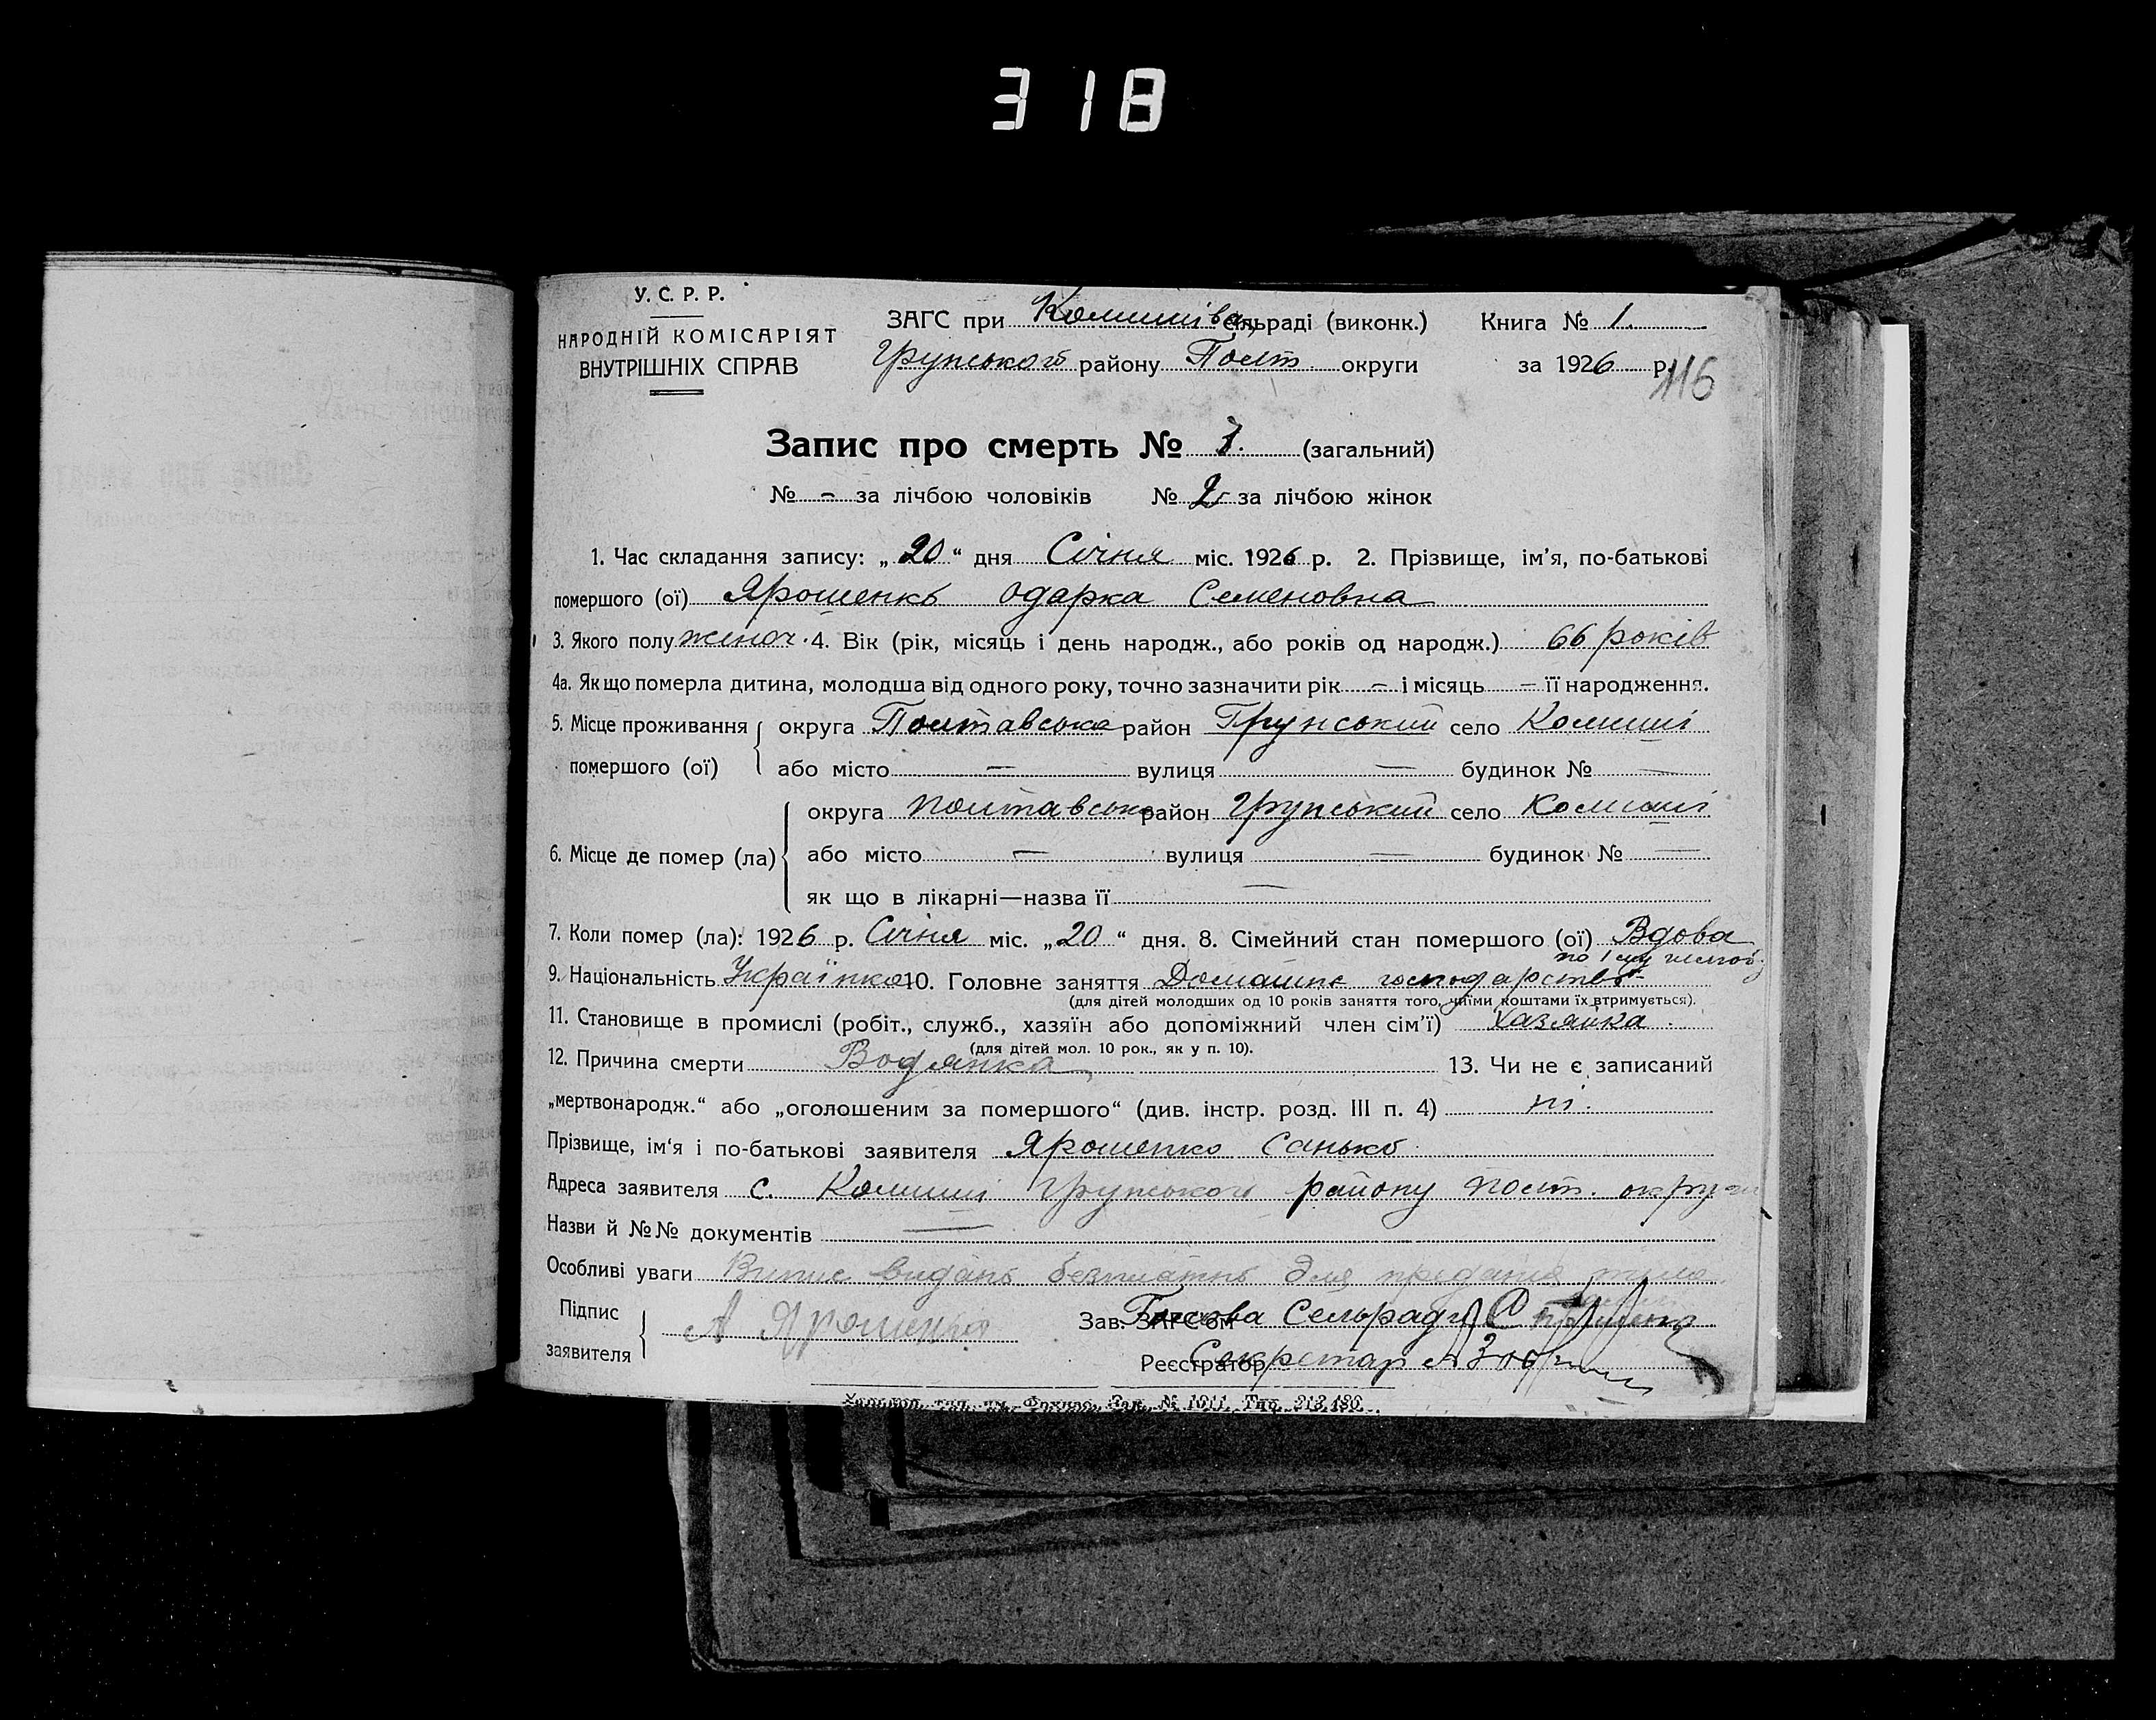 318
У. С. Р. Р.
НАРОДНІЙ КОМІСАРІЯТ
ВНУТРІШНІХ СПРАВ
ЗАГС при Комишіва, сільраді (виконк.) Книга № 1.
Грунського району Полт. округи за 1926 р.
116
Запис про смерть № (загальний)
№ - за лічбою чоловіків № 2 за лічбою жінок
1. Час складання запису: „20“ дня Січня міс. 1926 р. 2. Прізвище, ім'я, по-батькові
помершого (ої) Ярошенко Одарка Семеновна
3. Якого полу жіноч. 4. Вік (рік, місяць і день народж., або років од народж.) 66 років
4а. Як що померла дитина, молодша від одного року, точно зазначити рік — і місяць — її народження.
5. Місце проживання округа Полтавська район Грунський село Комиші
помершого (ої) або місто — вулиця — будинок № —
округа Полтавська район Грунський село Комиші
6. Місце де помер (ла) або місто — вулиця — будинок № —
як що в лікарні—назва її —
7. Коли помер (ла): 1926 р. Січня міс. „20“ дня. 8. Сімейний стан помершого (ої) Вдова
по 1 му
9. Національність Українка 10. Головне заняття Домашнє господарство
(для дітей молодших од 10 років заняття того, чиїми коштами їх втримується).
11. Становище в промислі (робіт., служб., хазяїн або допоміжний член сім'ї) Хазяйка.
(для дітей мол. 10 рок., як у п. 10).
12. Причина смерти Водянка 13. Чи не є записаний
„мертвонародж.“ або „оголошеним за помершого“ (див. інстр. розд. III п. 4) ні.
Прізвище, ім'я і по-батькові заявителя Ярошенко Санько
Адреса заявителя с. Комиші Грунського району Полт. округи
Назви й №№ документів —
Особливі уваги Випис видано безплатно для предания тила
Підпис
заявителя А Ярошенко
Зав. ЗАГС'ом Голова Сельради
Реєстратор Секретар
Зак. № 1011. Тир. 213.480.